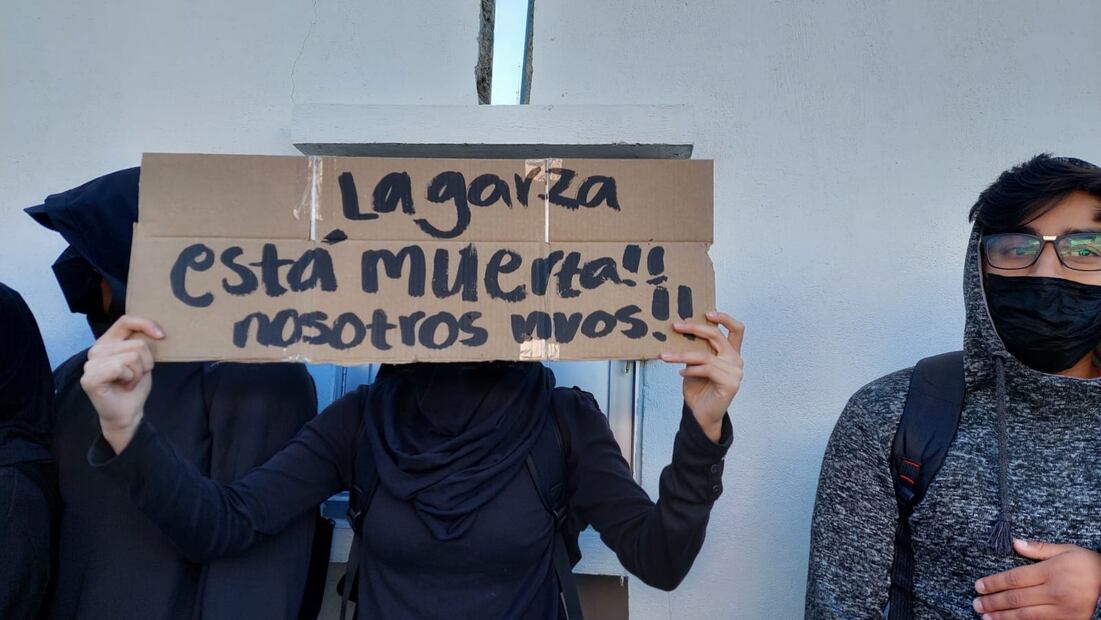 La garza
está muerta!!
nosotros vivos!!